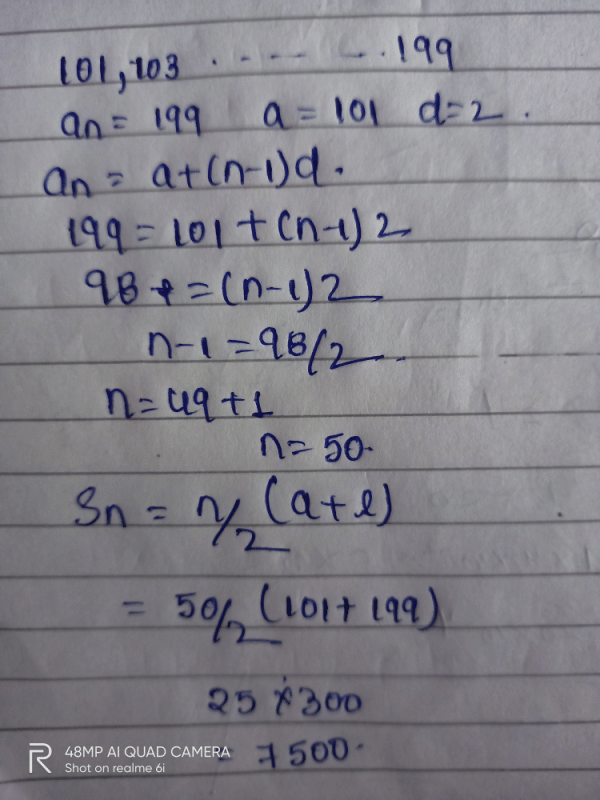 101, 103 ·---- -·199
an = 199 a = 101 d=2.
an = a+(n-1)d.
199 = 101 + (n-1) 2
98 = (n-1) 2
n-1 = 98/2
n = 49+1
n = 50.
Sn = n/2 (a+l)
= 50/2 (101+ 199)
25 × 300
= 7500.
48MP AI QUAD CAMERA
Shot on realme 6i